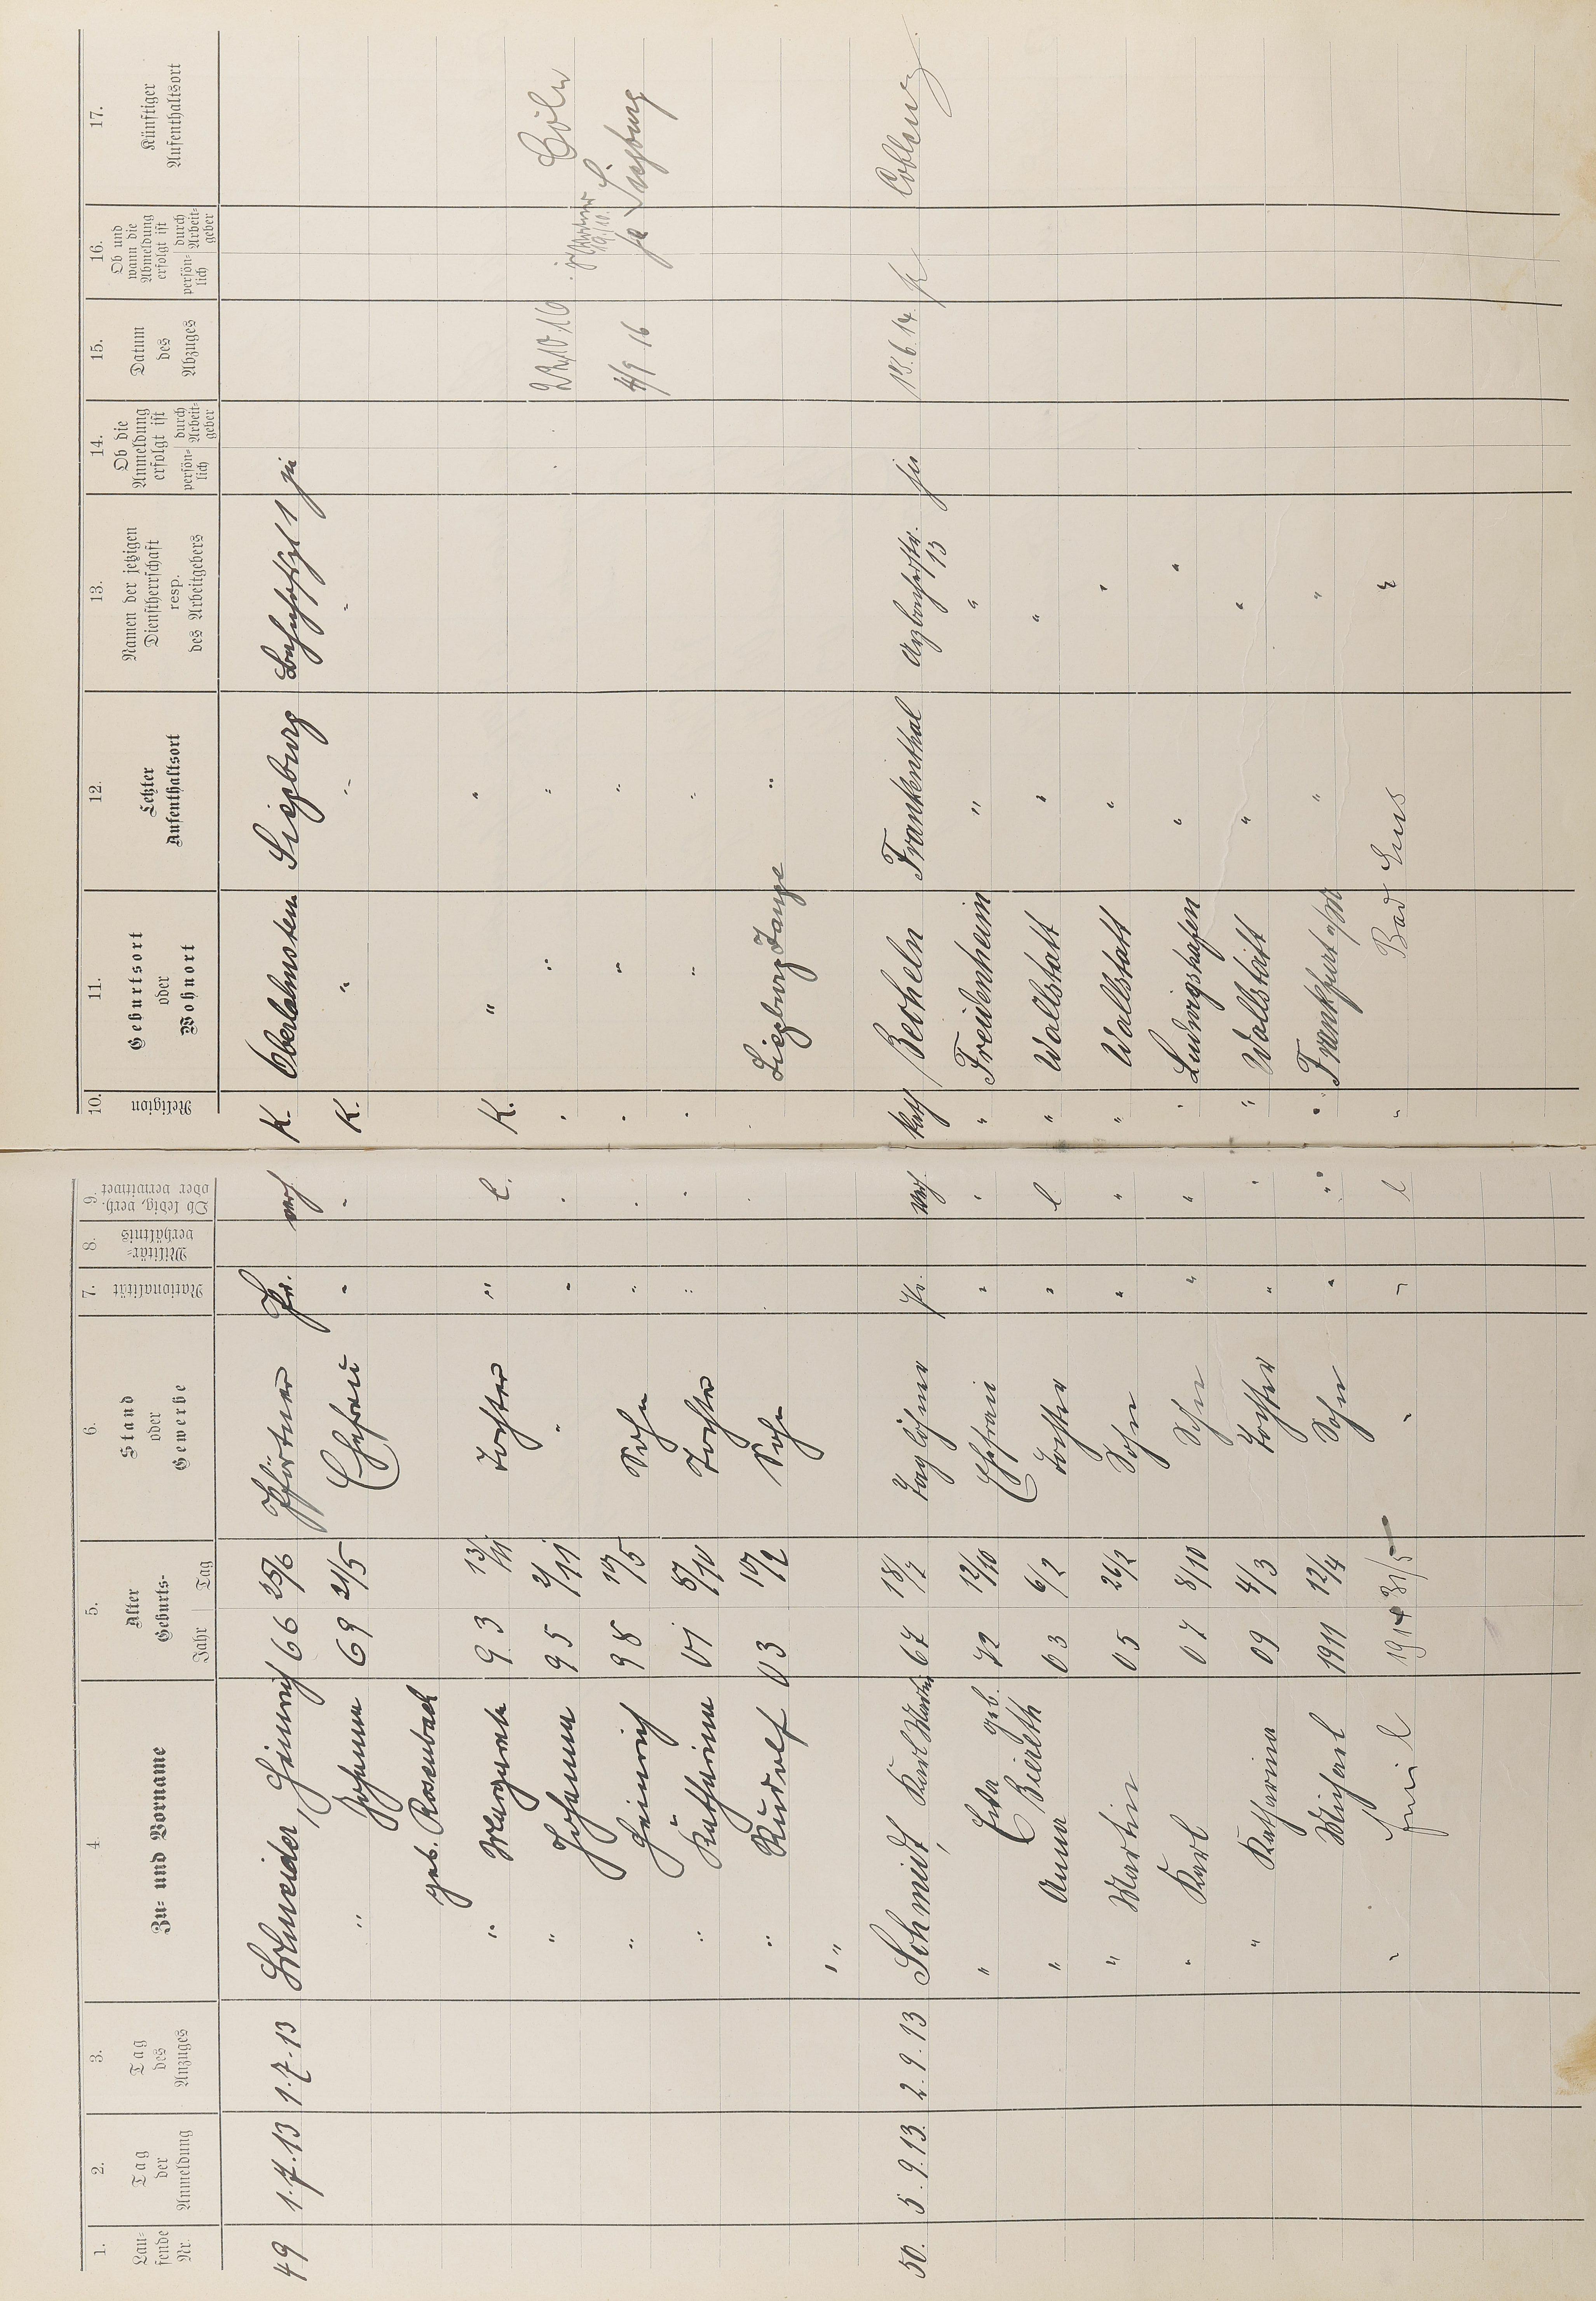 1. Lau= fende Nr.
2. Tag der Anmeldung
3. Tag des Anzuges
4 Zu= und Vorname
5. Alter Geburts= Jahr Tag
6. Stand oder Gewerbe
7. Nationalität
8. Militär= verhältnis
9. Ob ledig, verh. oder verwitwet
10. Religion
11. Geburtsort oder Wohnort
12. Letzter Aufenthaltsort
13. Namen der jetzigen Dienstherrschaft resp. des Arbeitgebers
14. Ob die Anmeldung erfolgt ist persön= lich durch Arbeit= geber
15. Datum des Abzuges
16. Ob und wann die Abmeldung erfolgt ist persön= lich durch Arbeit= geber
17. Künftiger Aufenthaltsort
49 1.7.13 1.7.13 Schneider, Heinrich 66 25/6 Pförtner Pr. verh K. Oberlahnstein Siegburg 1 ja
" Johanna 69 21/5 Ehefrau " " K. " " "
geb. Rosenbach
" Margareta 93 13/11 Tochter " l. K. " "
" Johanna 95 2/11 " " " " " " 22.10.16 Cöln
" Heinrich 98 19/5 Sohn " " " " " 4/9 16 ja Siegburg
" Katharina 01 Tochter " " " " "
" Rudolf 03 19/2 Sohn Siegburg "
" "
50. 5.9.13. 2.9.13 Schmidt, Karl Martin 67 18/7 Taglöhner Pr. verh. kath Becheln Frankenthal Arzbacherstr. 13 ja 13.6.14. ja Coblenz
" Eva geb. Biereth 72 12/10 Ehefrau " " " Freudenheim " "
" Anna 03 6/2 Tochter " l " Wallstatt " "
" Martin 05 26/2 Sohn " " " Wallstatt " "
" Karl 07 8/10 Sohn " " " Ludwigshafen " "
" Katharina 09 4/3 Tochter " " " Wallstatt " "
Michael 1911 12/4 Sohn " " " Frankfurt a/M " "
" Emil 1914 31/5 " " l " Bad Ems "